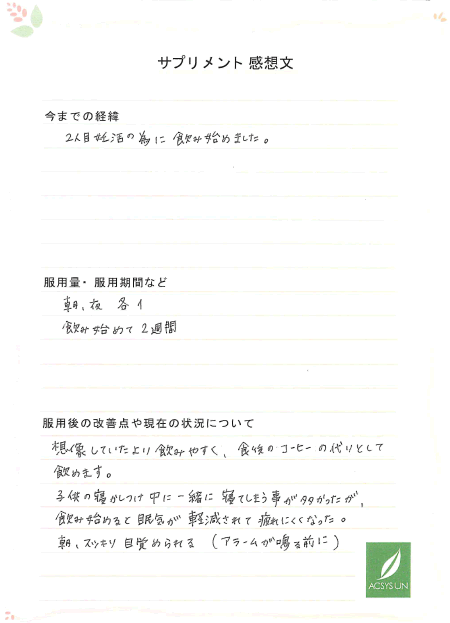 サプリメント 感想文
今までの経緯
2人目妊活の為に飲み始めました。
服用量・服用期間など
朝、夜 各1
飲み始めて2週間
服用後の改善点や現在の状況について
想像していたより飲みやすく、食後のコーヒーの代りとして
飲めます。
子供の寝かしつけ中に一緒に寝てしまう事が多かったが、
飲み始めると眠気が軽減されて疲れにくくなった。
朝、スッキリ目覚められる (アラームが鳴る前に)
ACSYSUN